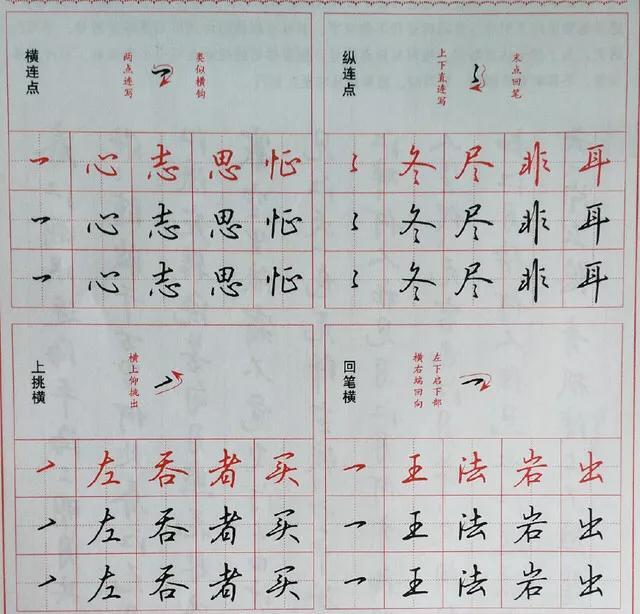 横连点
两点连写
类似横钩
心 志 思 怔
心 志 思 怔
心 志 思 怔
纵连点
上下直连写
末点回笔
冬 尽 非 耳
冬 尽 非 耳
冬 尽 非 耳
上挑横
横上仰挑出
左 吞 者 买
左 吞 者 买
左 吞 者 买
回笔横
横右端回向
左下启下部
王 法 岩 出
王 法 岩 出
王 法 岩 出